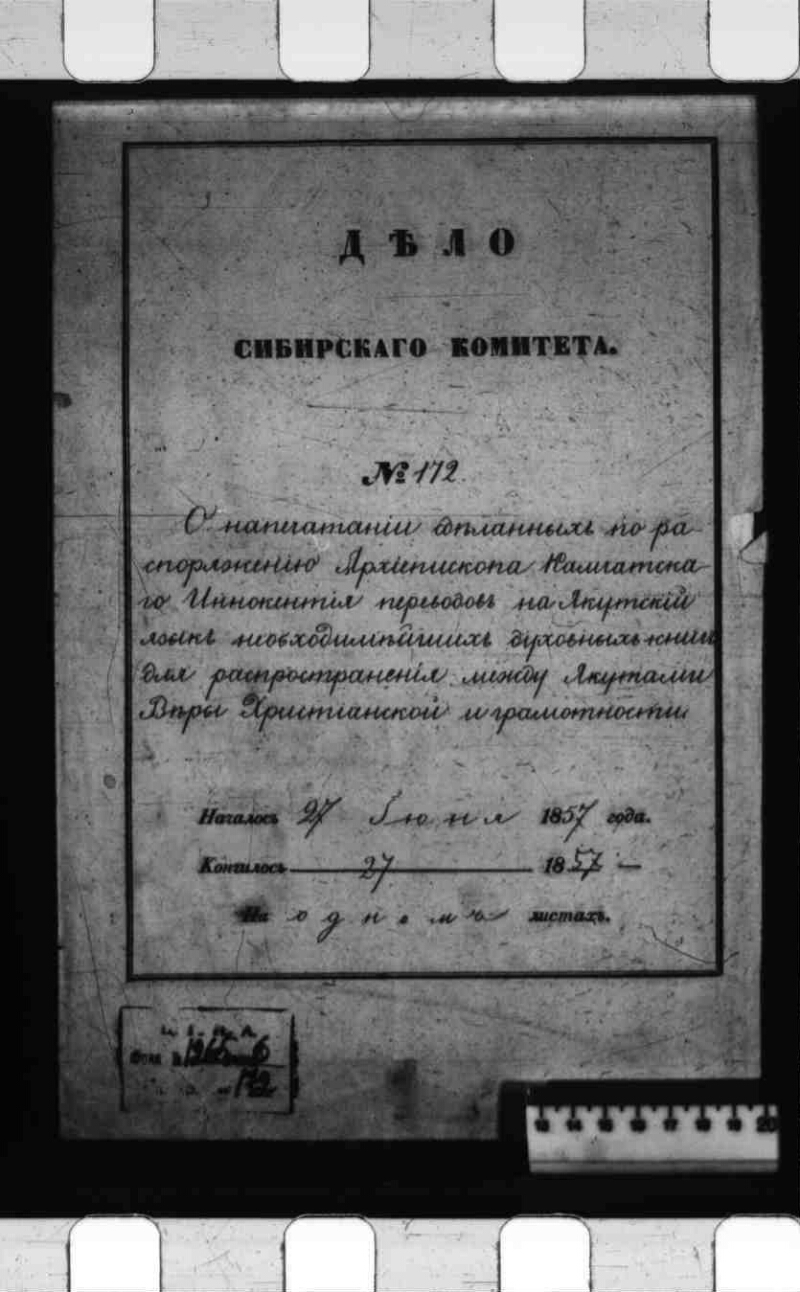 ДѢЛО
СИБИРСКАГО КОМИТЕТА.
№ 172
О напечатаніи сдѣланныхъ по ра-
споряженію Архіепископа Камчатска-
го Иннокентія переводовъ на Якутскій
языкъ необходимѣйшихъ духовныхъ книгъ
для распространенія между Якутами
Вѣры Христіанской и грамотности
Началось 27 Іюня 1857 года.
Кончилось 27 1857 —
На одномъ листахъ.
172
13 14 15 16 17 18 19 20